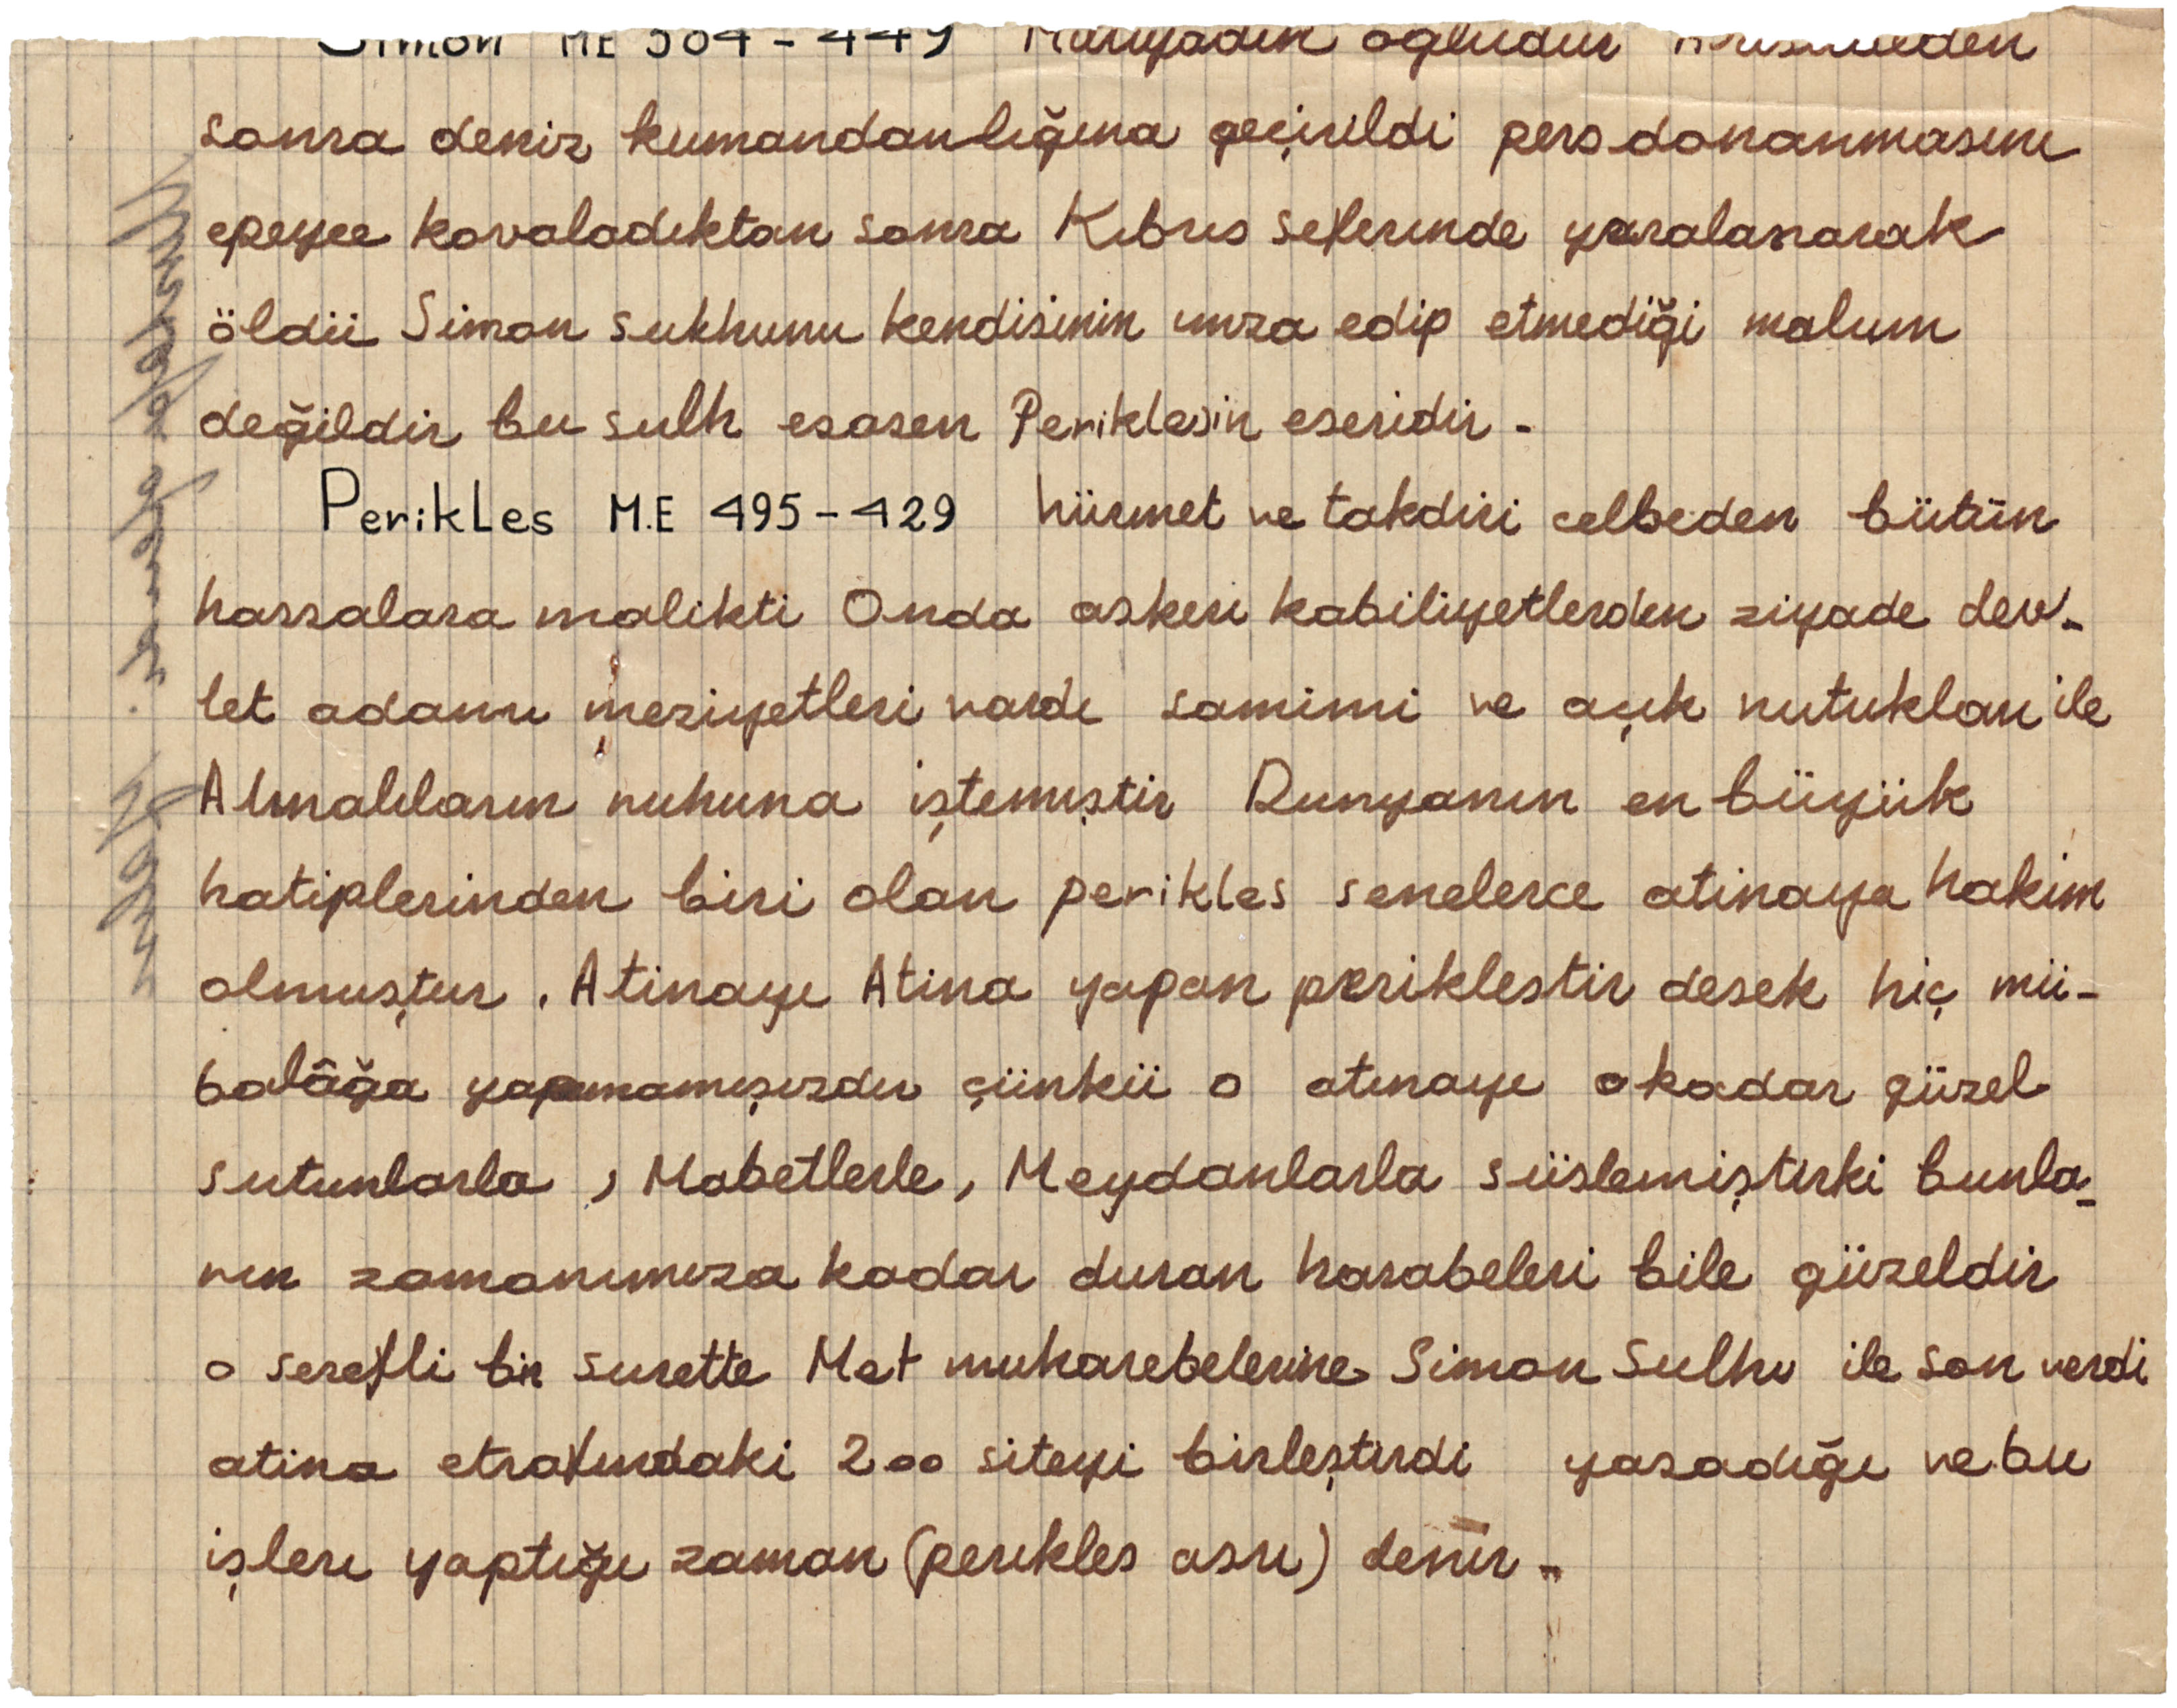 Simon ME 504 - 449 oğludur
sonra deniz kumandanlığına geçirildi pers donanmasını
epeyce kovaladıktan sonra Kıbrıs seferınde yaralanarak
öldü Simon sukhunu kendisinin ımza edip etmediği malum
değildir bu sulh esasen Periklesin eseridir -
Perikles M.E 495-429 hürmet ve takdiri celbeden bütün
hassalara malikti Onda askerı kabiliyetlerden ziyade dev-
let adamı meziyetleri vardı samimi ve açık nutukları ile
Atınalıların ruhuna iştemıştir Dunyanın en büyük
hatiplerinden biri olan perikles senelerce atinaya hakim
olmuştur . Atinayı Atina yapan periklestir desek hiç mü-
balâğa yapmamışızdır çünkü o atınayı o kadar güzel
sutunlarla , Mabetlerle, Meydanlarla süslemiştırki bunla-
rın zamanımıza kadar duran harabeleri bile güzeldir
o serefli bir surette Met muharebelerıne Simon Sulhu ile son verdi
atina etrafındaki 200 siteyi birleştırdi yasadığı ve bu
işlerı yaptığı zaman (perıkles asrı) denır -